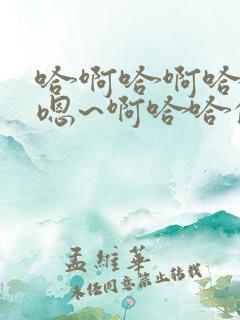 哈啊哈啊哈
嗯~啊哈哈
孟维华
未经同意禁止转载